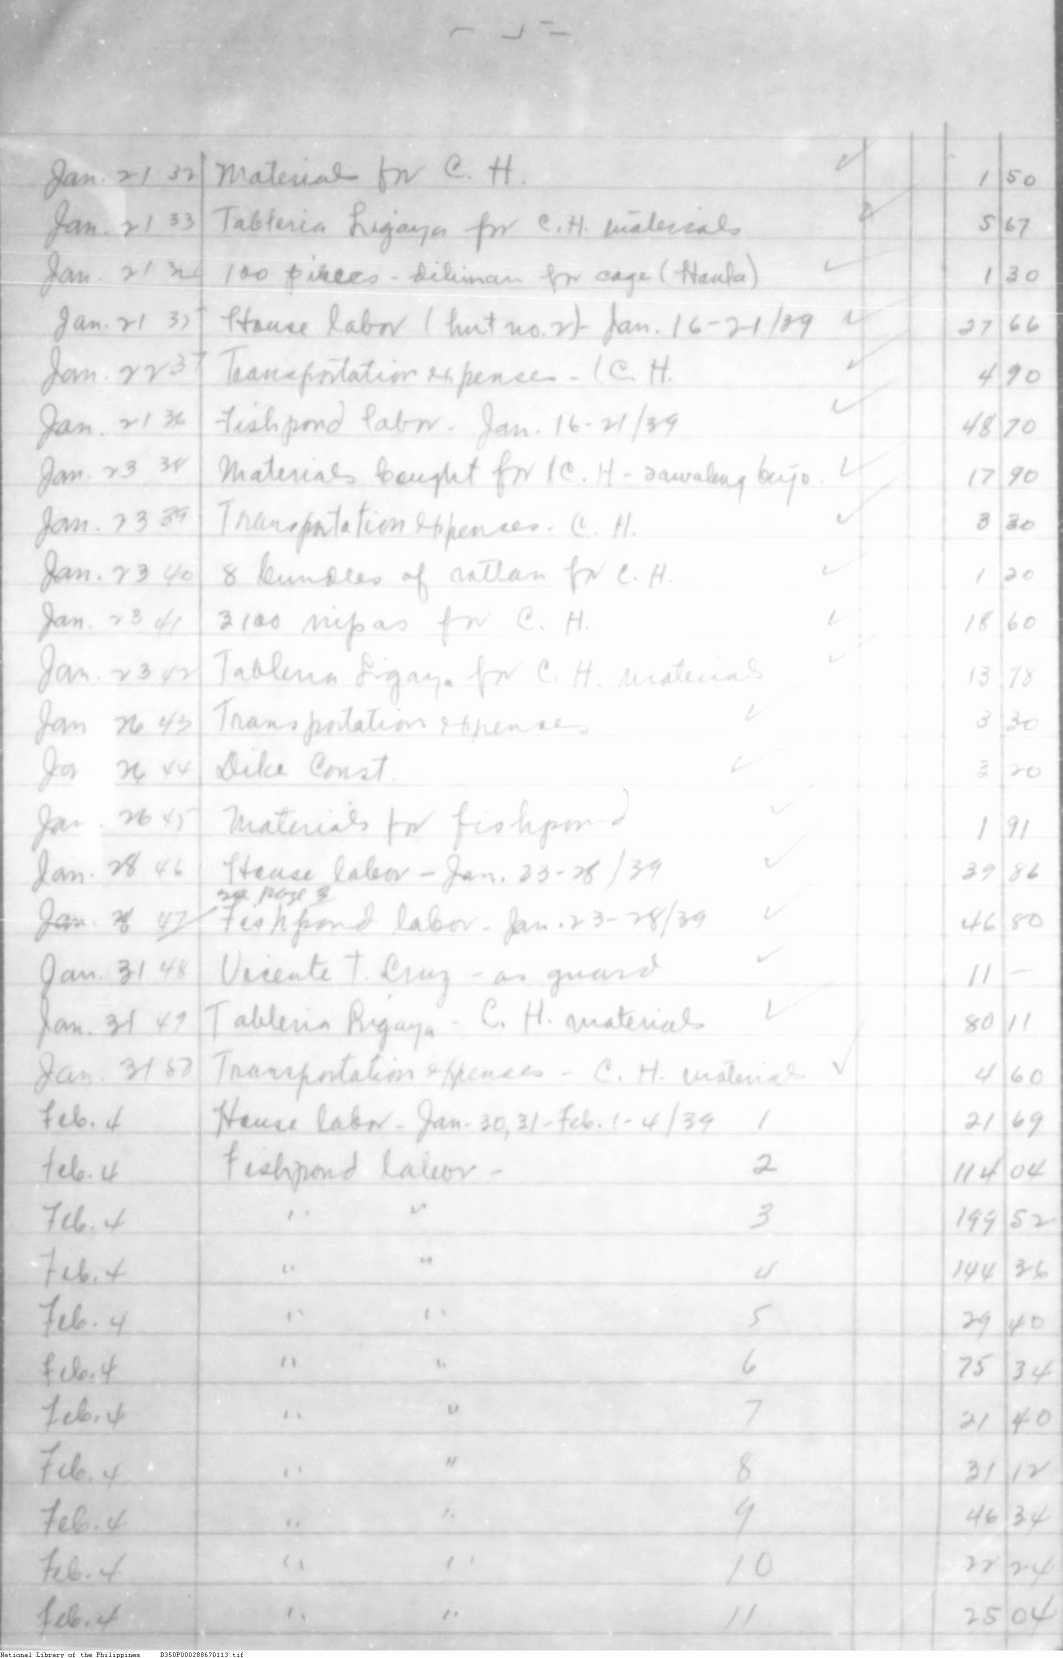 Jan. 21 32 Materials for C. H. ✓ 1 50
Jan. 21 33 Tableria Ligaya for C.H. materials ✓ 5 67
Jan. 21 34 100 pieces - diliman for cage (Haula) ✓ 1 30
Jan. 21 35 House labor (hut no. 2) - Jan. 16-21/39 ✓ 27 66
Jan. 22 37 Transportation expenses - C. H. ✓ 4 90
Jan. 21 36 Fishpond labor - Jan. 16-21/39 ✓ 48 70
Jan. 23 38 Materials bought for C. H - sawaleng ✓ 17 90
Jan. 23 39 Transportation expenses - C. H. ✓ 3 30
Jan. 23 40 8 bundles of rattan for C. H. ✓ 1 20
Jan. 23 41 3100 nipas for C. H. ✓ 18 60
Jan. 23 42 Tableria Ligaya for C. H. materials ✓ 13 78
Jan 26 43 Transportation expenses ✓ 3 30
Jan 26 44 Dike Const. ✓ 3 20
Jan. 26 45 Materials for fishpond ✓ 1 91
Jan. 28 46 House labor - Jan. 23-28/39 ✓ 39 86
see page 3
Jan. 28 47 Fishpond labor - Jan. 23-28/39 ✓ 46 80
Jan. 31 48 Vicente T. Cruz - as guard ✓ 11 —
Jan. 31 49 Tableria Ligaya - C. H. materials ✓ 80 11
Jan. 31 50 Transportation expenses - C. H. material ✓ 4 60
Feb. 4 House labor - Jan. 30, 31 - Feb. 1-4/39 1 21 69
Feb. 4 Fishpond labor - 2 114 04
Feb. 4 " " 3 199 52
Feb. 4 " " 4 144 36
Feb. 4 " " 5 29 40
Feb. 4 " " 6 75 34
Feb. 4 " " 7 21 40
Feb. 4 " " 8 31 12
Feb. 4 " " 9 46 34
Feb. 4 " " 10 22 24
Feb. 4 " " 11 25 04
National Library of the Philippines D350P000288670113.tif